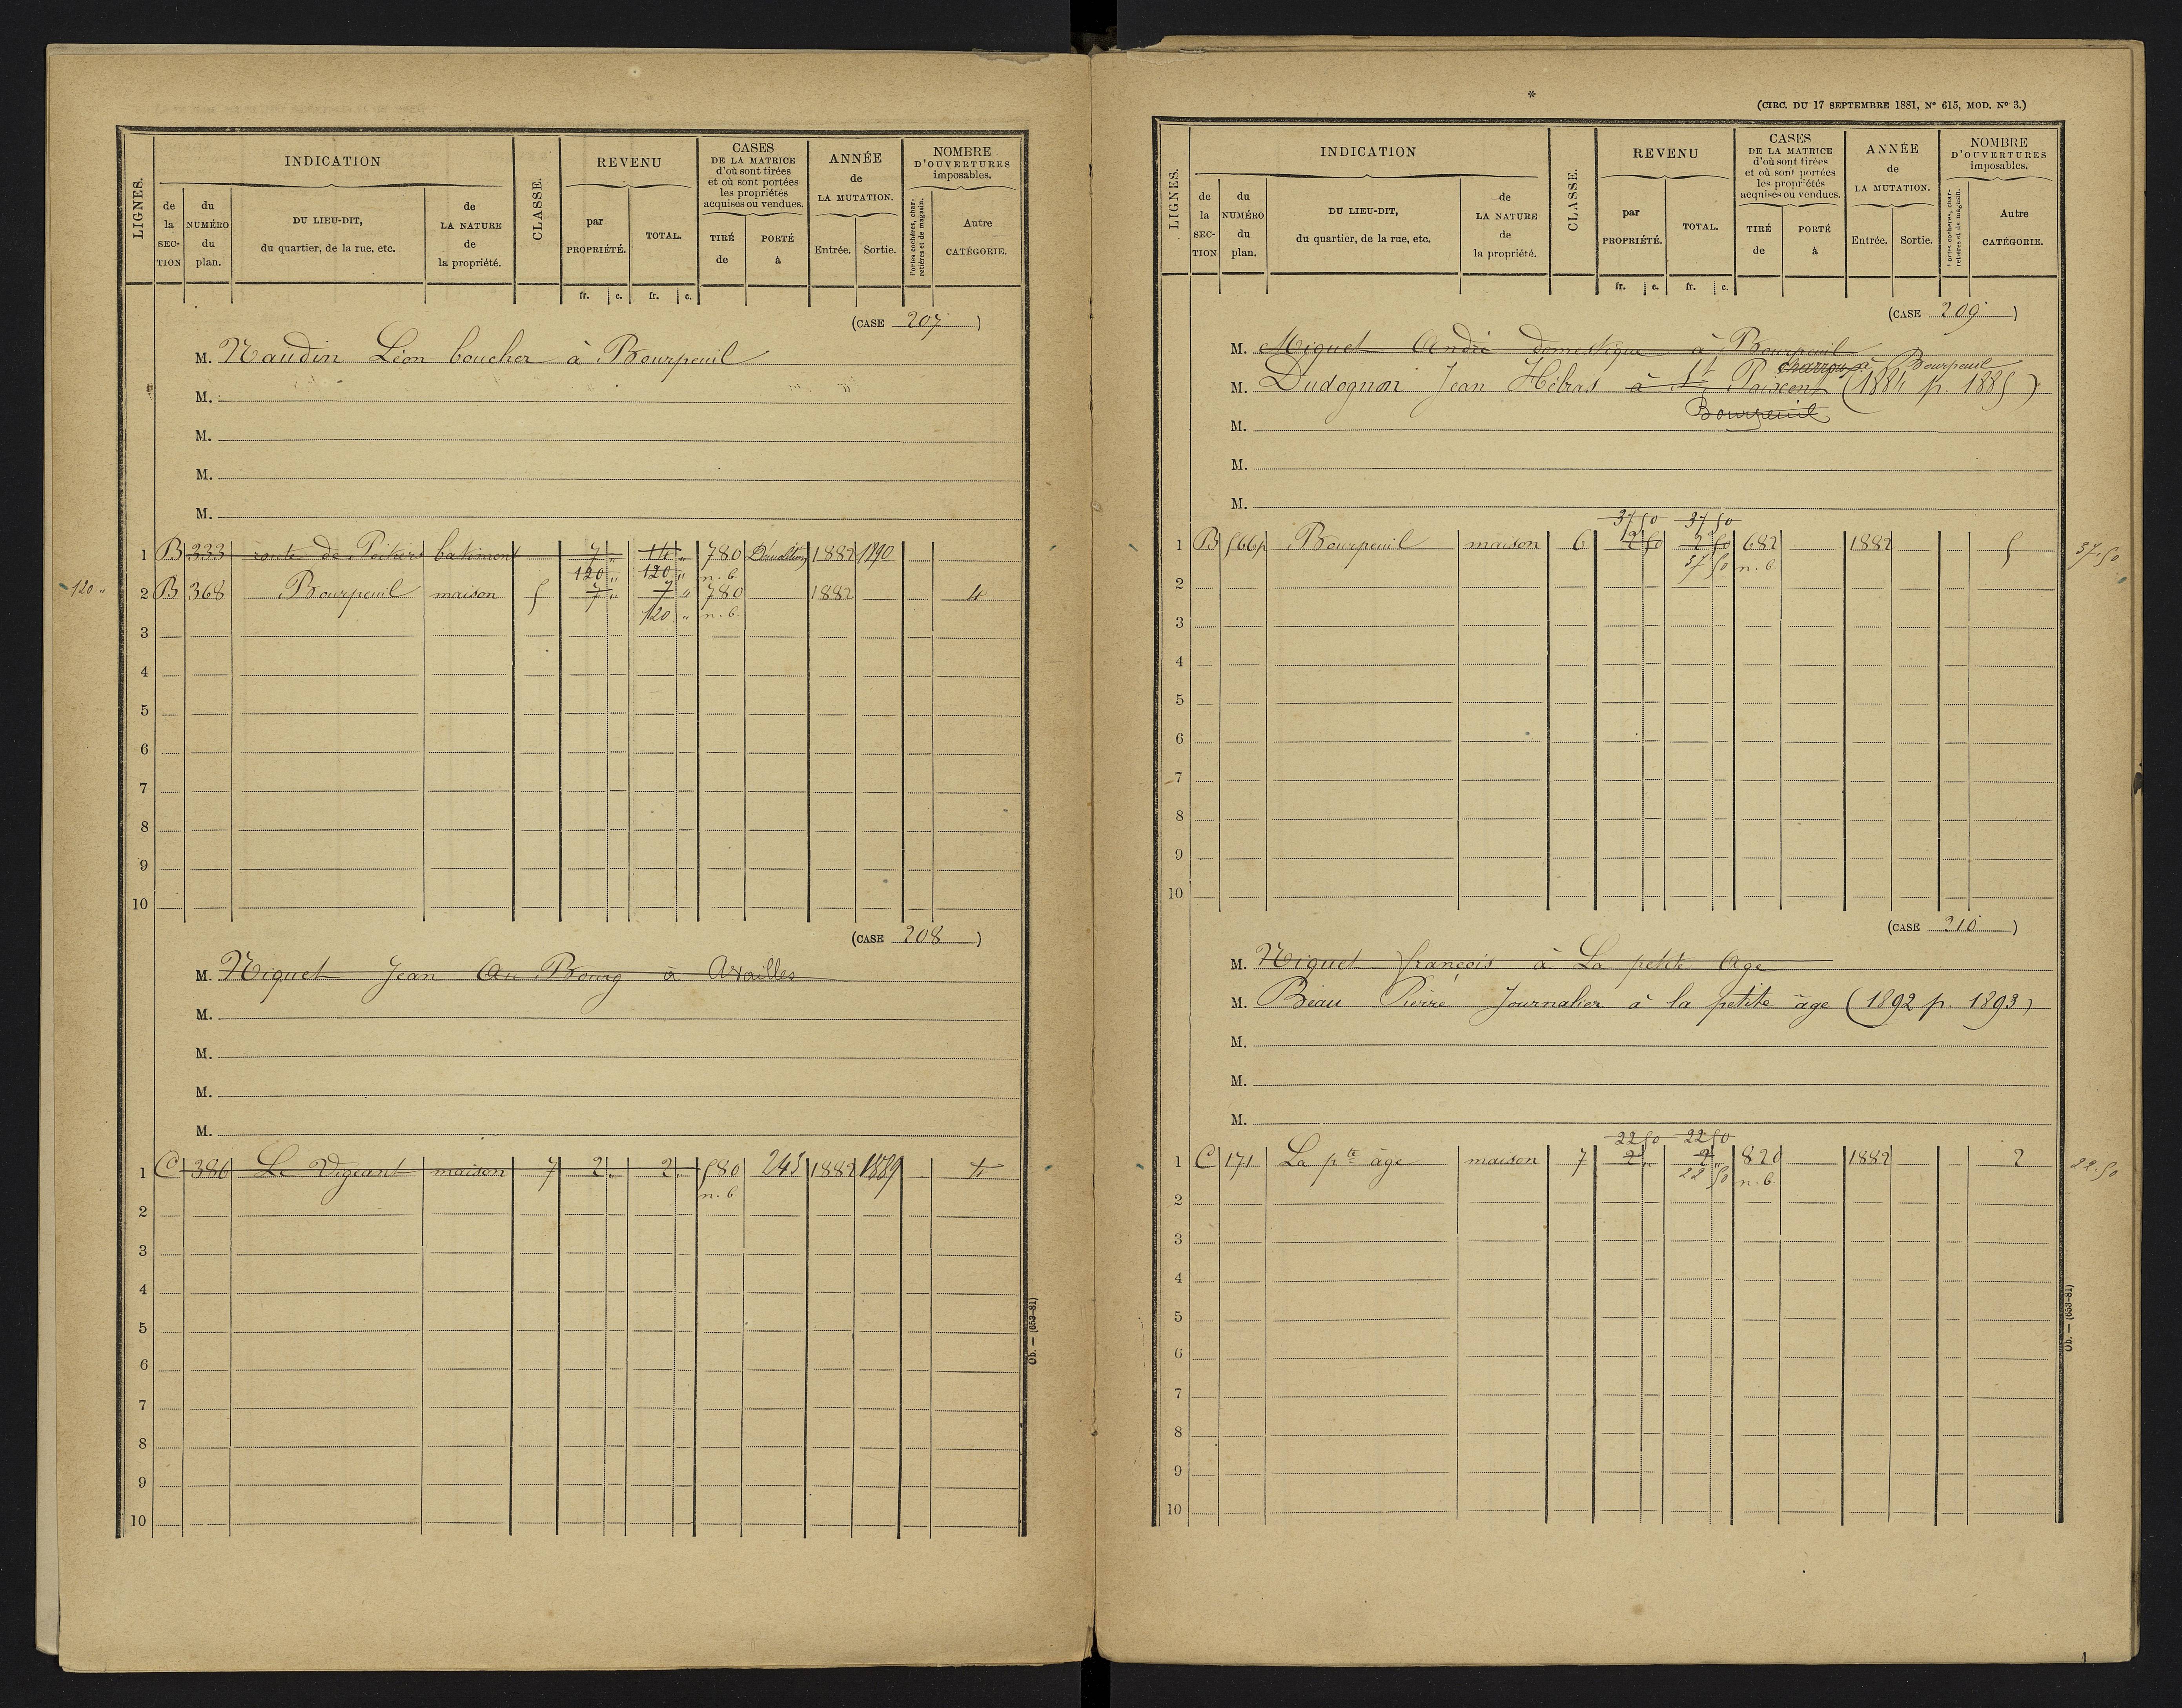 LIGNES.
INDICATION
de la SECTION
du NUMÉRO du plan.
DU LIEU-DIT, du quartier, de la rue, etc.
de LA NATURE de la propriété.
CLASSE.
REVENU
par PROPRIÉTÉ.
TOTAL.
CASES DE LA MATRICE d'où sont tirées et où sont portées les propriétés acquises ou vendues.
TIRÉ de
PORTÉ à
ANNÉE de LA MUTATION.
Entrée.
Sortie.
NOMBRE D'OUVERTURES imposables.
Portes cochères, charretières et de magasin.
Autre CATÉGORIE.
fr. c. fr. c.
(CASE 207)
M. Naudin Léon boucher à Bourpeuil
M.
M.
M.
M.
1 B 333 route de Poitiers batiment 7 " 14 " 780 Démolition 1882 1890
120 " 120 " n.b.
120 " 2 B 368 Bourpeuil maison 5 7 " 7 " 780 1882 4
120 " n.b.
3
4
5
6
7
8
9
10
(CASE 208)
M. Niquet Jean Au Bourg à Availles
M.
M.
M.
M.
1 C 386 Le Vigeant maison 7 2 " 2 " 580 243 1882 1889 4
n.b.
2
3
4
5
6
7
8
9
10
Ob. — (653-81)
*
(CIRC. DU 17 SEPTEMBRE 1881, N° 615, MOD. N° 3.)
LIGNES.
INDICATION
de la SECTION
du NUMÉRO du plan.
DU LIEU-DIT, du quartier, de la rue, etc.
de LA NATURE de la propriété.
CLASSE.
REVENU
par PROPRIÉTÉ.
TOTAL.
CASES DE LA MATRICE d'où sont tirées et où sont portées les propriétés acquises ou vendues.
TIRÉ de
PORTÉ à
ANNÉE de LA MUTATION.
Entrée.
Sortie.
NOMBRE D'OUVERTURES imposables.
Portes cochères, charretières et de magasin.
Autre CATÉGORIE.
fr. c. fr. c.
(CASE 209)
M. Miguet André domestique à Bourpeuil
Charroux à Bourpeuil
M. Dudognon Jean Hébras à St (1884 p. 1885)
Bourpeuil
M.
M.
M.
37 50 37 50
1 B 566p Bourpeuil maison 6 2 50 2 50 682 1882 5 37.50
37 50 n.b.
2
3
4
5
6
7
8
9
10
(CASE 210)
M. Niquet françois à La petite Age
M. Beau Pierre Journalier à la petite âge (1892 p. 1893)
M.
M.
M.
22 50 22 50
1 C 171 La pte âge maison 7 2 " 2 " 820 1882 2 22.50
22 50 n.b.
2
3
4
5
6
7
8
9
10
Ob. — (653-81)